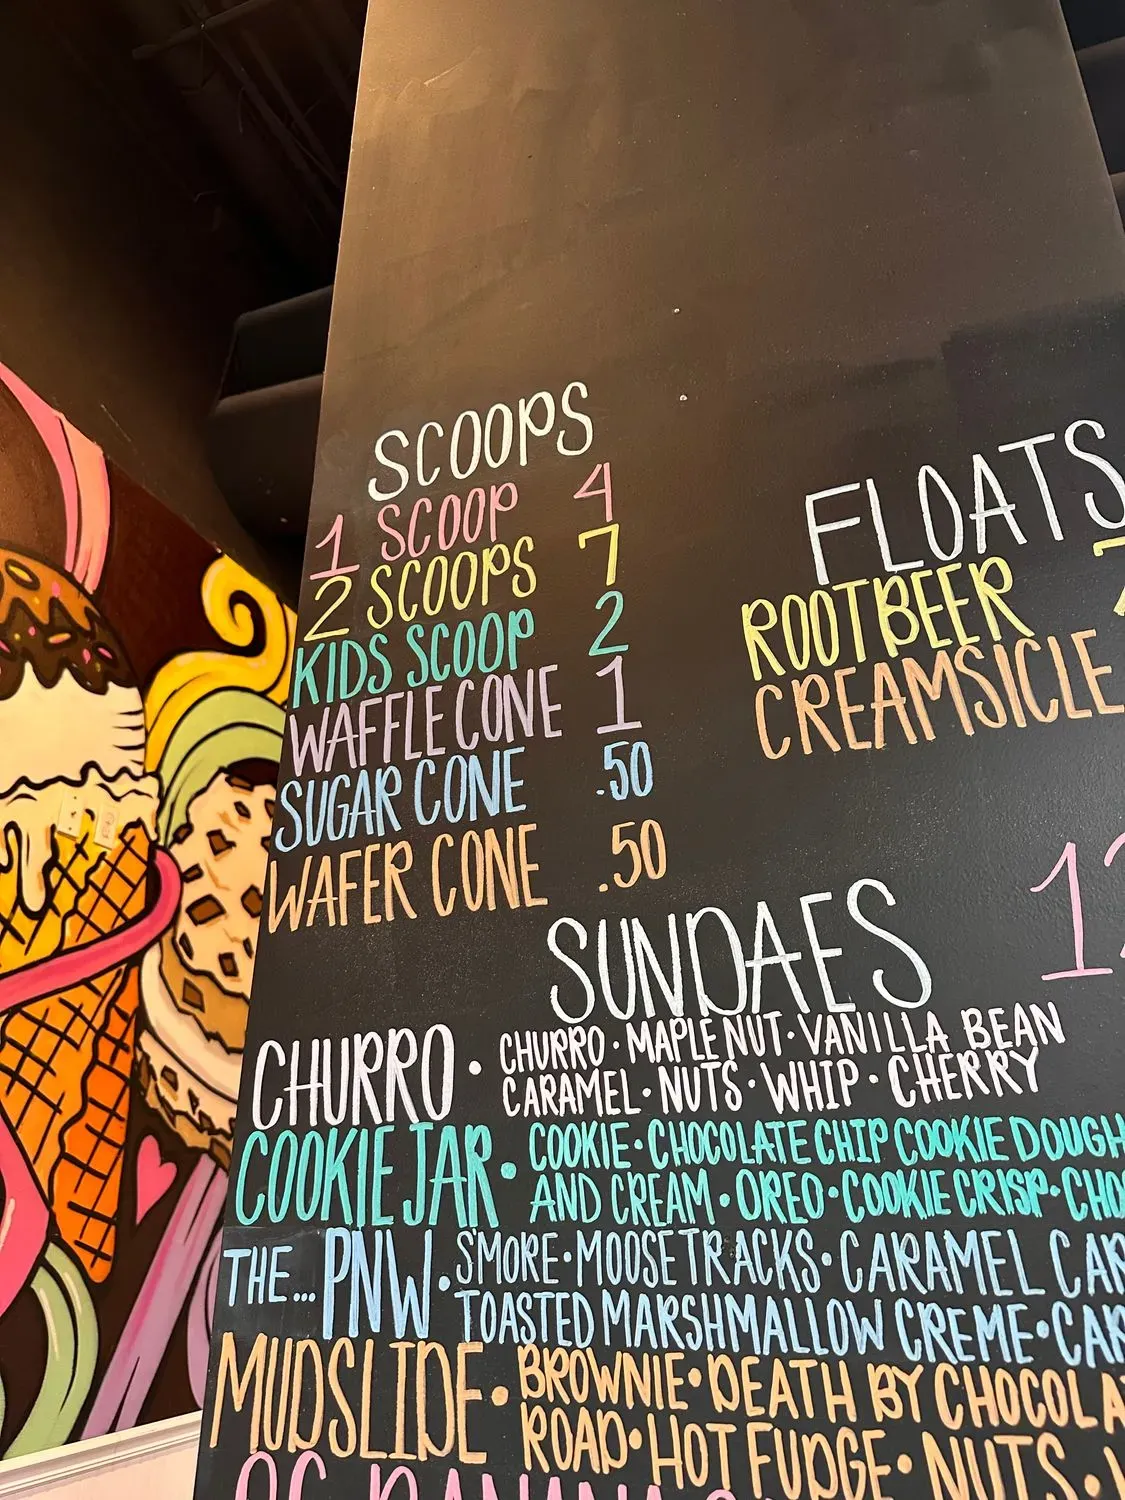 SCOOPS
1 SCOOP 4
2 SCOOPS 7
KIDS SCOOP 2
WAFFLE CONE 1
SUGAR CONE .50
WAFER CONE .50
FLOATS
ROOTBEER
CREAMSICLE
SUNDAES
CHURRO · CHURRO · MAPLE NUT · VANILLA BEAN
CARAMEL · NUTS · WHIP · CHERRY
COOKIE JAR · COOKIE · CHOCOLATE CHIP COOKIE DOUGH
AND CREAM · OREO · COOKIE CRISP ·
THE... PNW · S'MORE · MOOSE TRACKS · CARAMEL
TOASTED MARSHMALLOW CREME ·
MUDSLIDE · BROWNIE · DEATH BY
ROAD · HOT FUDGE · NUTS ·